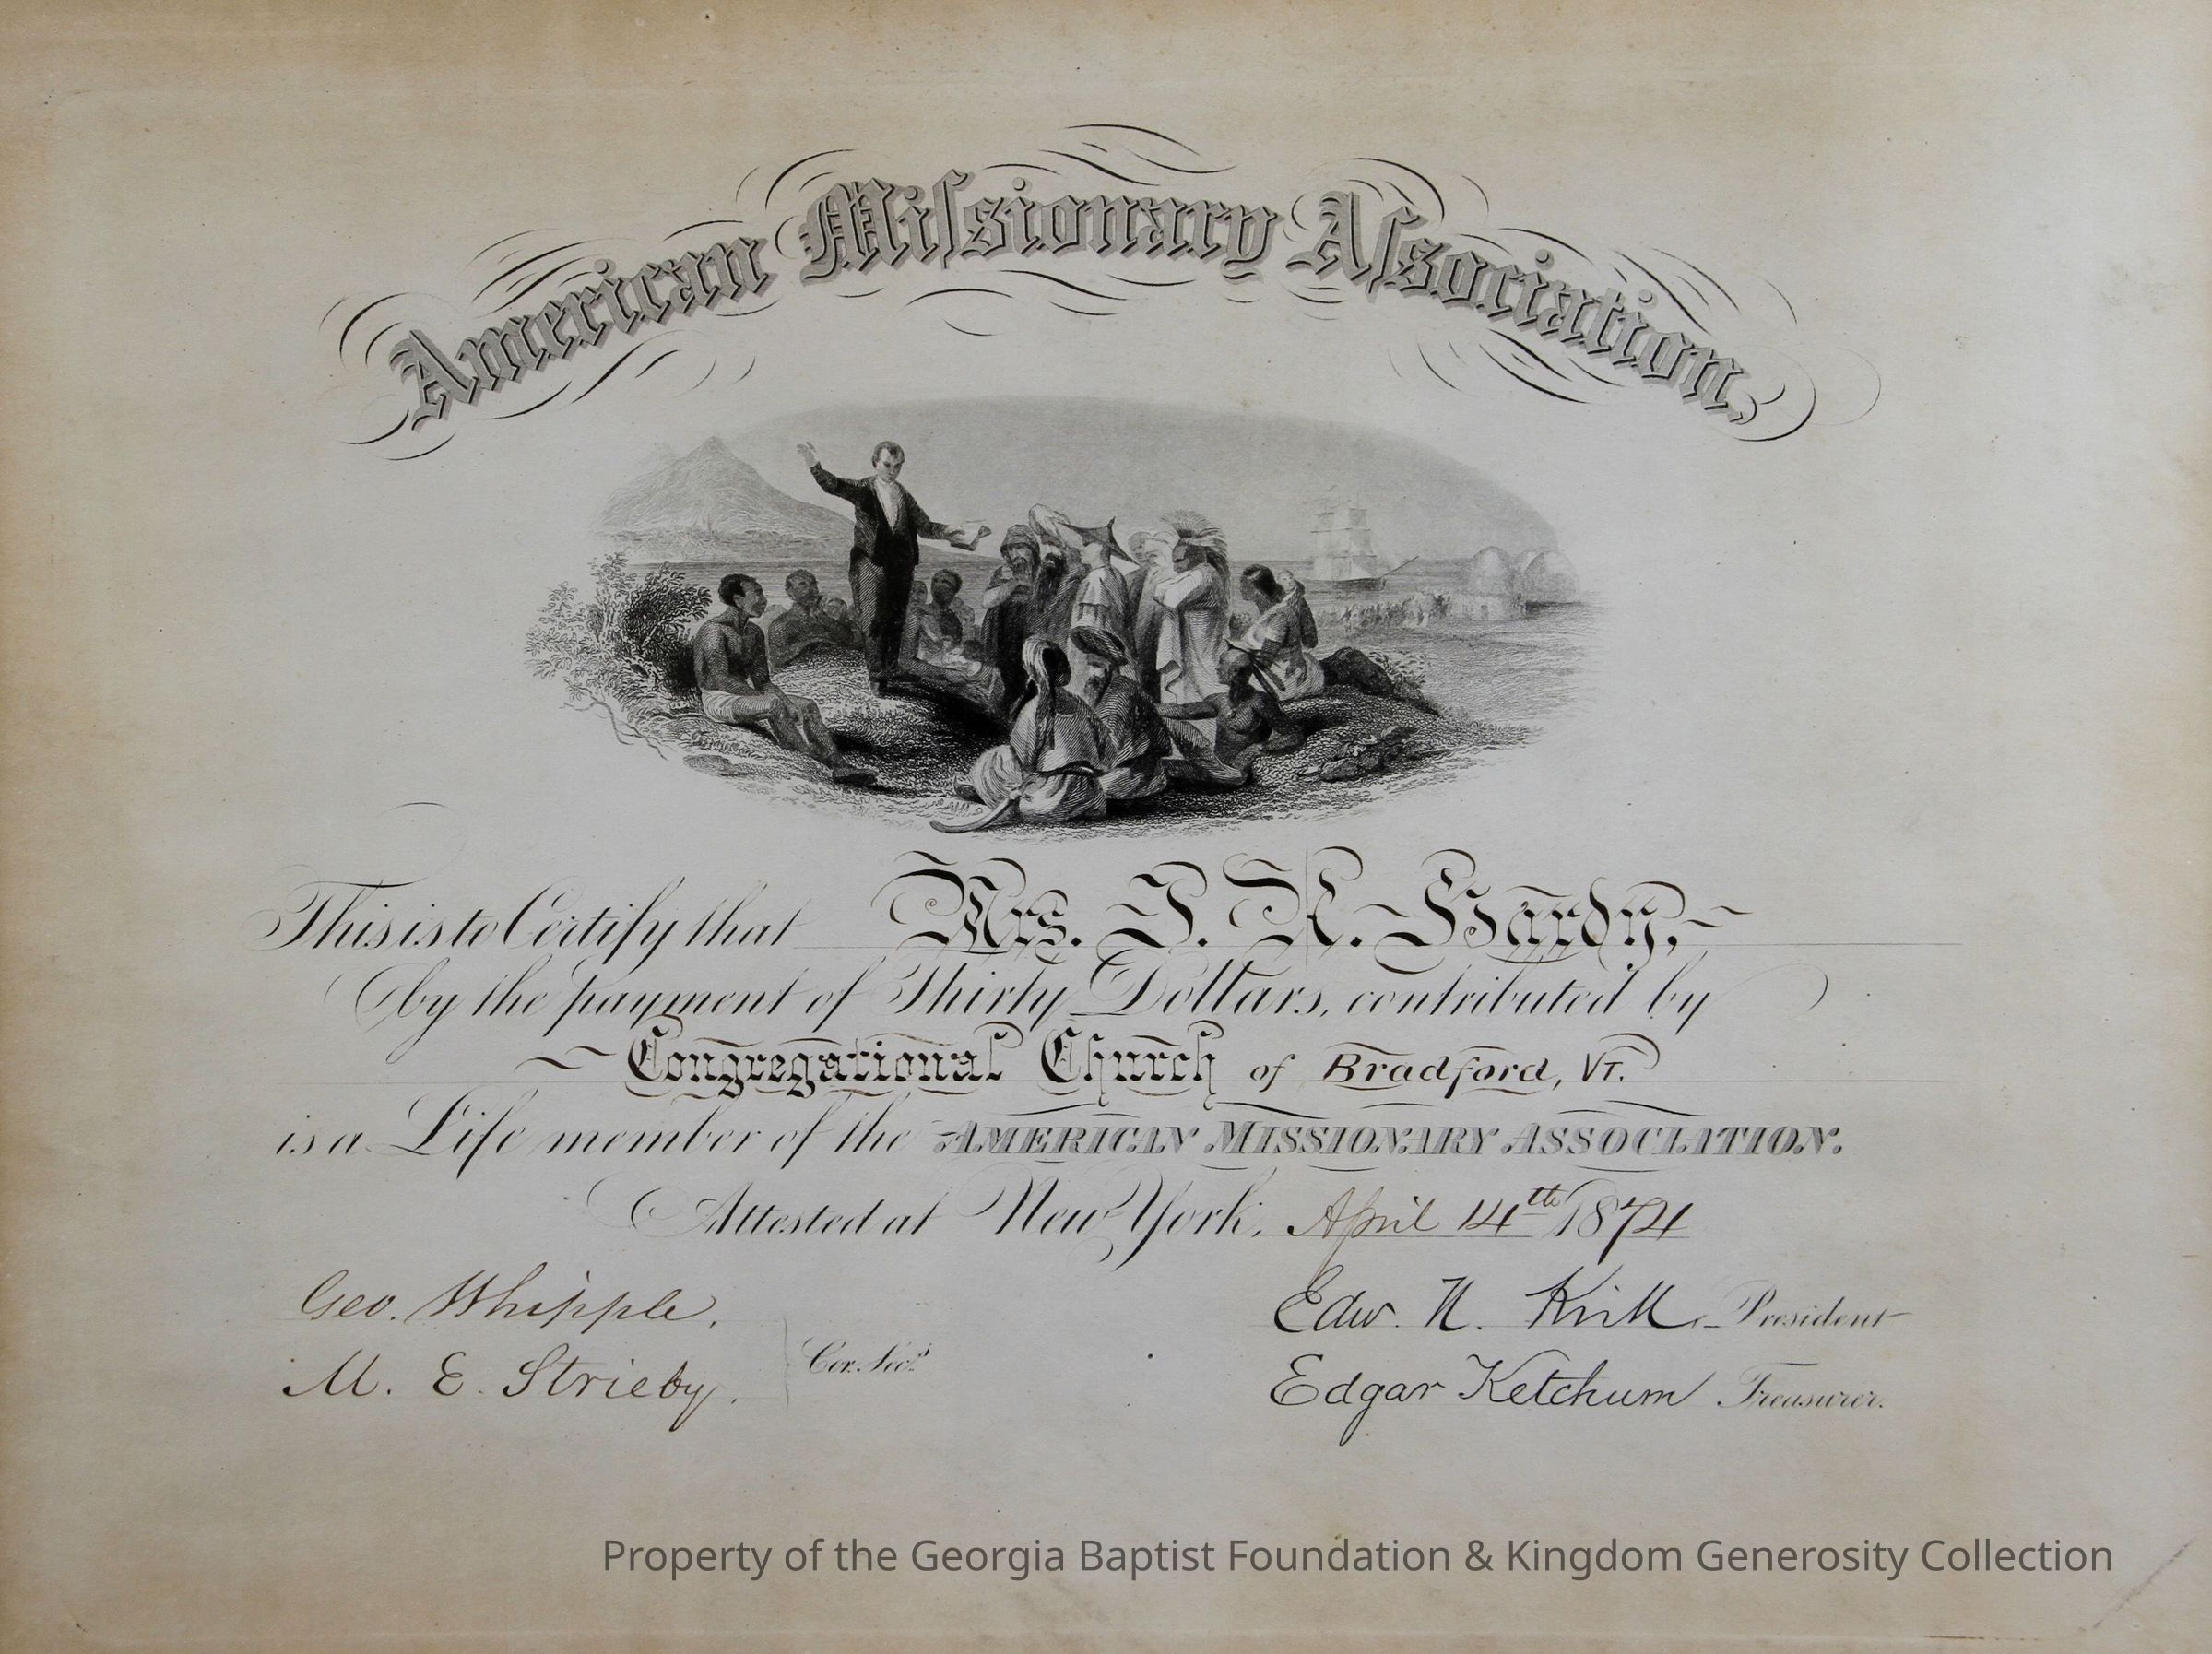 American Miſsionary Aſsociation.
This is to Certify that Mrs. J. K. Hardy,
by the payment of Thirty Dollars, contributed by
Congregational Church of Bradford, Vt.
is a Life member of the AMERICAN MISSIONARY ASSOCIATION.
Attested at New York, April 14th 1874
Geo. Whipple,
M. E. Strieby.
Cor. Secs.
Edw. N. Kirk President
Edgar Ketchum Treasurer.
Property of the Georgia Baptist Foundation & Kingdom Generosity Collection